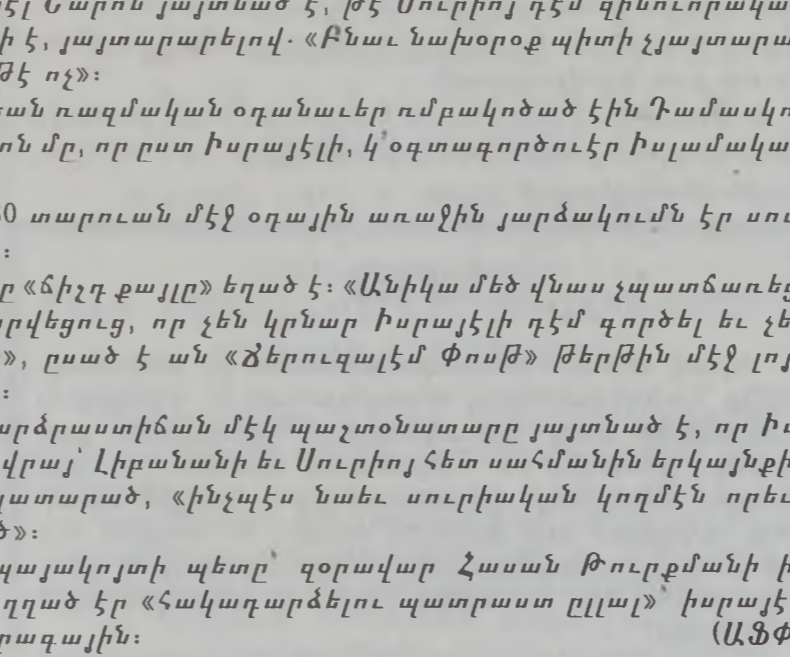 էլ Շարոն յայտնած է, թէ Սուրիոյ դէմ զինուորակա
ի է, յայտարարելով. «Բնաւ նախօրօք պիտի չյայտարա
թէ ոչ»։
ան ռազմական օդանաւեր ռմբակոծած էին Դամասկո
ոն մը, որ ըստ Իսրայէլի, կ՚օգտագործուէր Իսլամակա
30 տարուան մէջ օդային առաջին յարձակումն էր սու
։
ը «ճիշդ քայլը» եղած է։ «Անիկա մեծ վնաս չպատճառեց
րվեցուց, որ չեն կրնար Իսրայէլի դէմ գործել եւ չե
», ըսած է ան «Ճերուզալէմ Փոսթ» թերթին մէջ լոյ
։
արձրաստիճան մէկ պաշտօնատարը յայտնած է, որ Իս
վրայ՝ Լիբանանի եւ Սուրիոյ հետ սահմանին երկայնքի
կատարած, «ինչպէս նաեւ սուրիական կողմէն որեւ
ծ»։
պայակոյտի պետը՝ զօրավար Հասան Թուրքմանի ի
ւղղած էր «հակադարձելու պատրաստ ըլլալ»՝ իսրայէ
րագային։ (ԱՖՓ